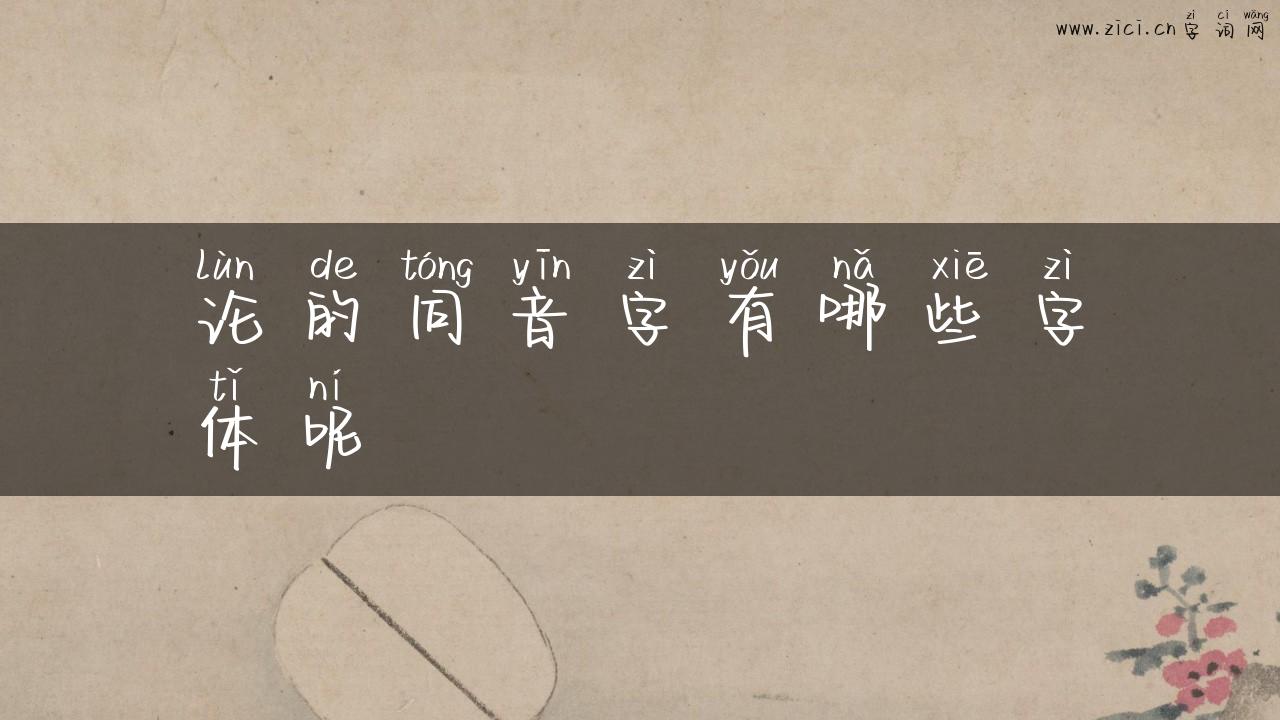 zì cí wǎng
www.zici.cn字词网
lùn de tóng yīn zì yǒu nǎ xiē zì
论的同音字有哪些字
tǐ ní
体呢